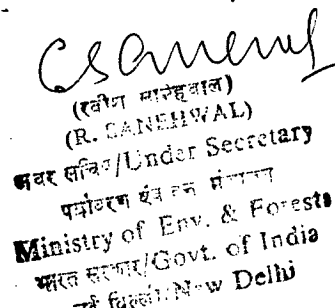 (रवीश सानेहवाल)
(R. SANEHWAL)
अवर सचिव/Under Secretary
पर्यावरण एवं वन मंत्रालय
Ministry of Env. & Forests
भारत सरकार/Govt. of India
नई दिल्ली/New Delhi